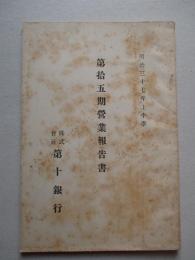 明治三十七年上半季
第拾五期營業報告書
株式會社 第十銀行